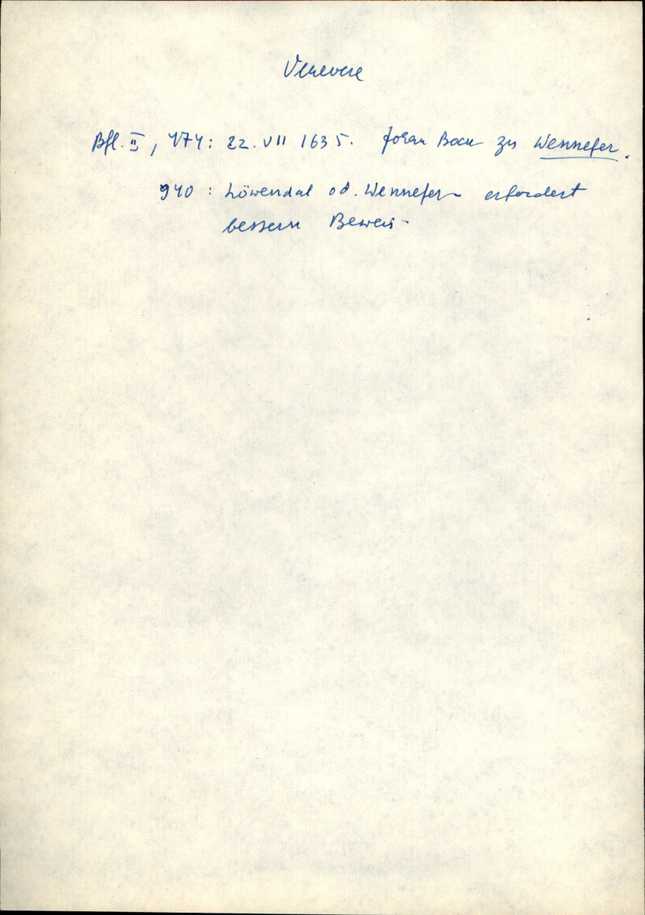 Venevere
Bfl. II, 474: 22. VII 1635. Johan Bock zu Wennefer.
940: Löwendal od. Wennefer erfordert
bessern Beweis